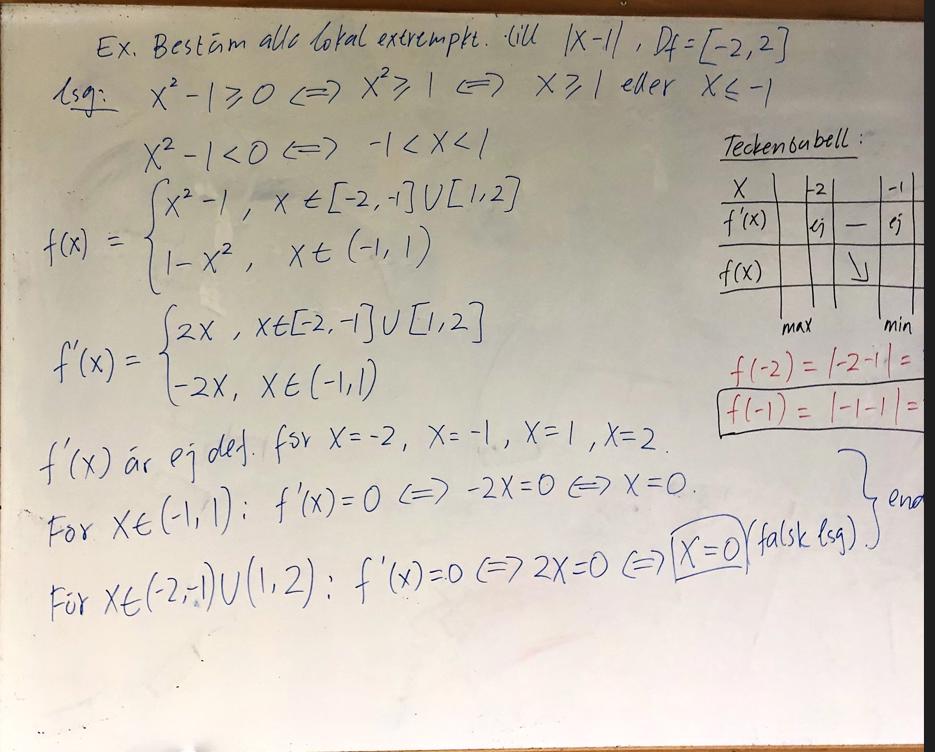 Ex. Bestäm alla lokal extrempkt. till |x-1|, Df = [-2,2]
lsg: x² - 1 ≥ 0 <=> x² ≥ 1 <=> x ≥ 1 eller x ≤ -1
x² - 1 < 0 <=> -1 < x < 1
f(x) = { x² - 1, x ∈ [-2,-1] ∪ [1,2]
1 - x², x ∈ (-1, 1)
f'(x) = { 2x, x ∈ [-2,-1] ∪ [1,2]
-2x, x ∈ (-1,1)
f'(x) är ej def. för x = -2, x = -1, x = 1, x = 2.
För x ∈ (-1,1): f'(x) = 0 <=> -2x = 0 <=> x = 0.
För x ∈ (-2,-1) ∪ (1,2): f'(x) = 0 <=> 2x = 0 <=> x = 0 (falsk lsg) } end
Teckentabell:
x -2 -1
f'(x) ej — ej
f(x) ↘
max min
f(-2) = |-2-1| =
f(-1) = |-1-1| =